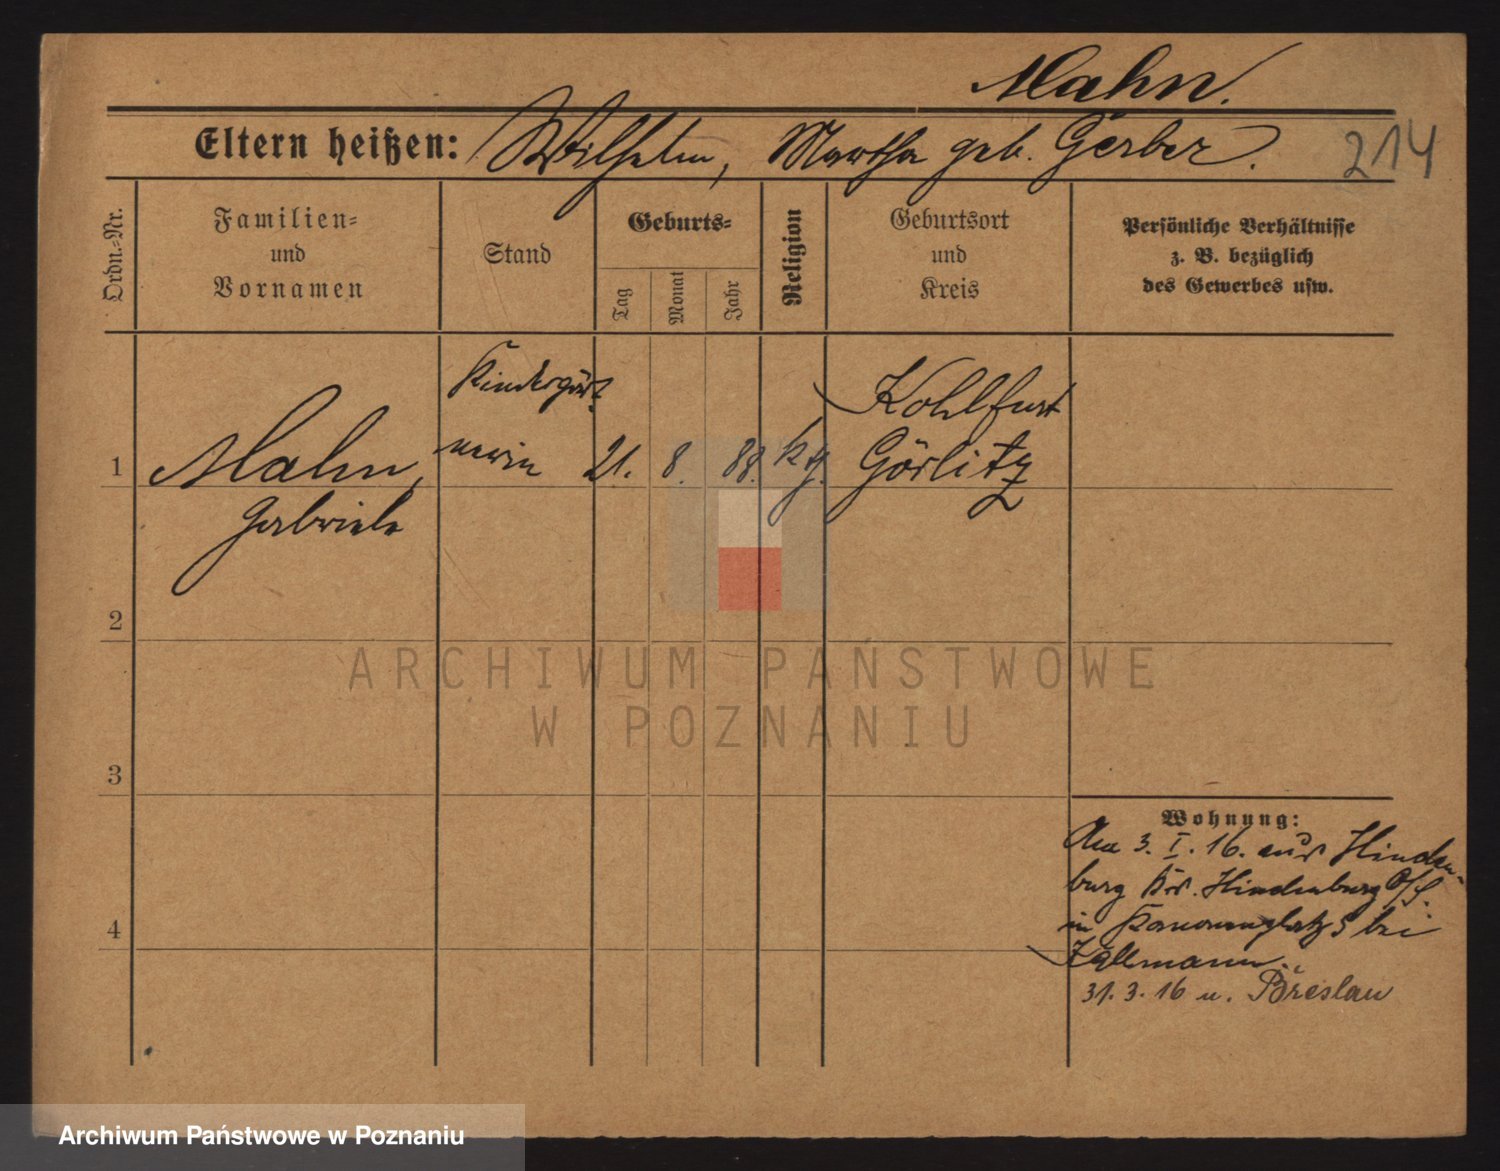 Mahn.
Eltern heißen: Wilhelm, Martha geb. Gerber.
214
Ordn.-Nr.
Familien-
und
Vornamen
Stand
Geburts-
Tag
Monat
Jahr
Religion
Geburtsort
und
Kreis
Persönliche Verhältnisse
z. B. bezüglich
des Gewerbes usw.
1
Mahn,
Gabriele
Kindergärt-
nerin
21.
8.
88.
kth.
Kohlfurt
Görlitz
2
3
4
Wohnung:
Am 3. I. 16. aus Hinden-
burg Krs. Hindenburg O/S.
in Kanonenplatz 5 bei
Kallmann.
31. 3. 16 n. Breslau
ARCHIWUM PAŃSTWOWE
W POZNANIU
Archiwum Państwowe w Poznaniu